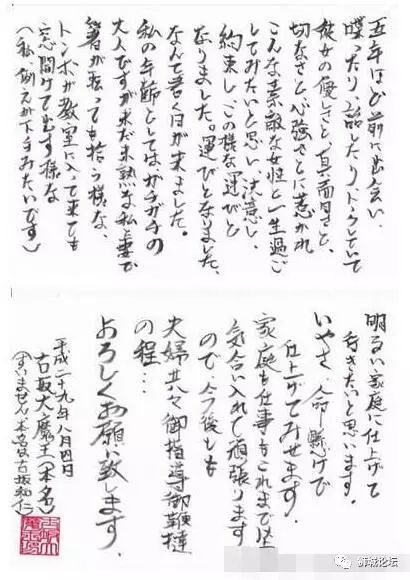 五年ほど前に出会い、
喋ったり、話したり、トークしていて
彼女の優しさと、真面目さと、
切なさと心強さに惹かれ
こんな素敵な女性と一生過ご
してみたいと思い、決意し、
約束し、この様な運びと
なりました。運びとなりました、
なんて書く日が来ました。
私の年齢としてはガチガチの
大人ですが、まだ未熟な私と妻で
箸が転っても拾う様な、
トンボが教室に入って来ても
窓開けて出す様な
(私、例えが下手みたいです)
明るい家庭に仕上げて
行きたいと思います。
いやさ、命懸けで
仕上げてみせます。
家庭も仕事もこれまで以上
気合い入れて頑張ります
ので、今後とも
夫婦共々御指導御鞭撻
の程…
よろしくお願い致します。
平成二十九年八月四日
古坂大魔王(本名)
(すいません本名は古坂和仁)
狮城论坛